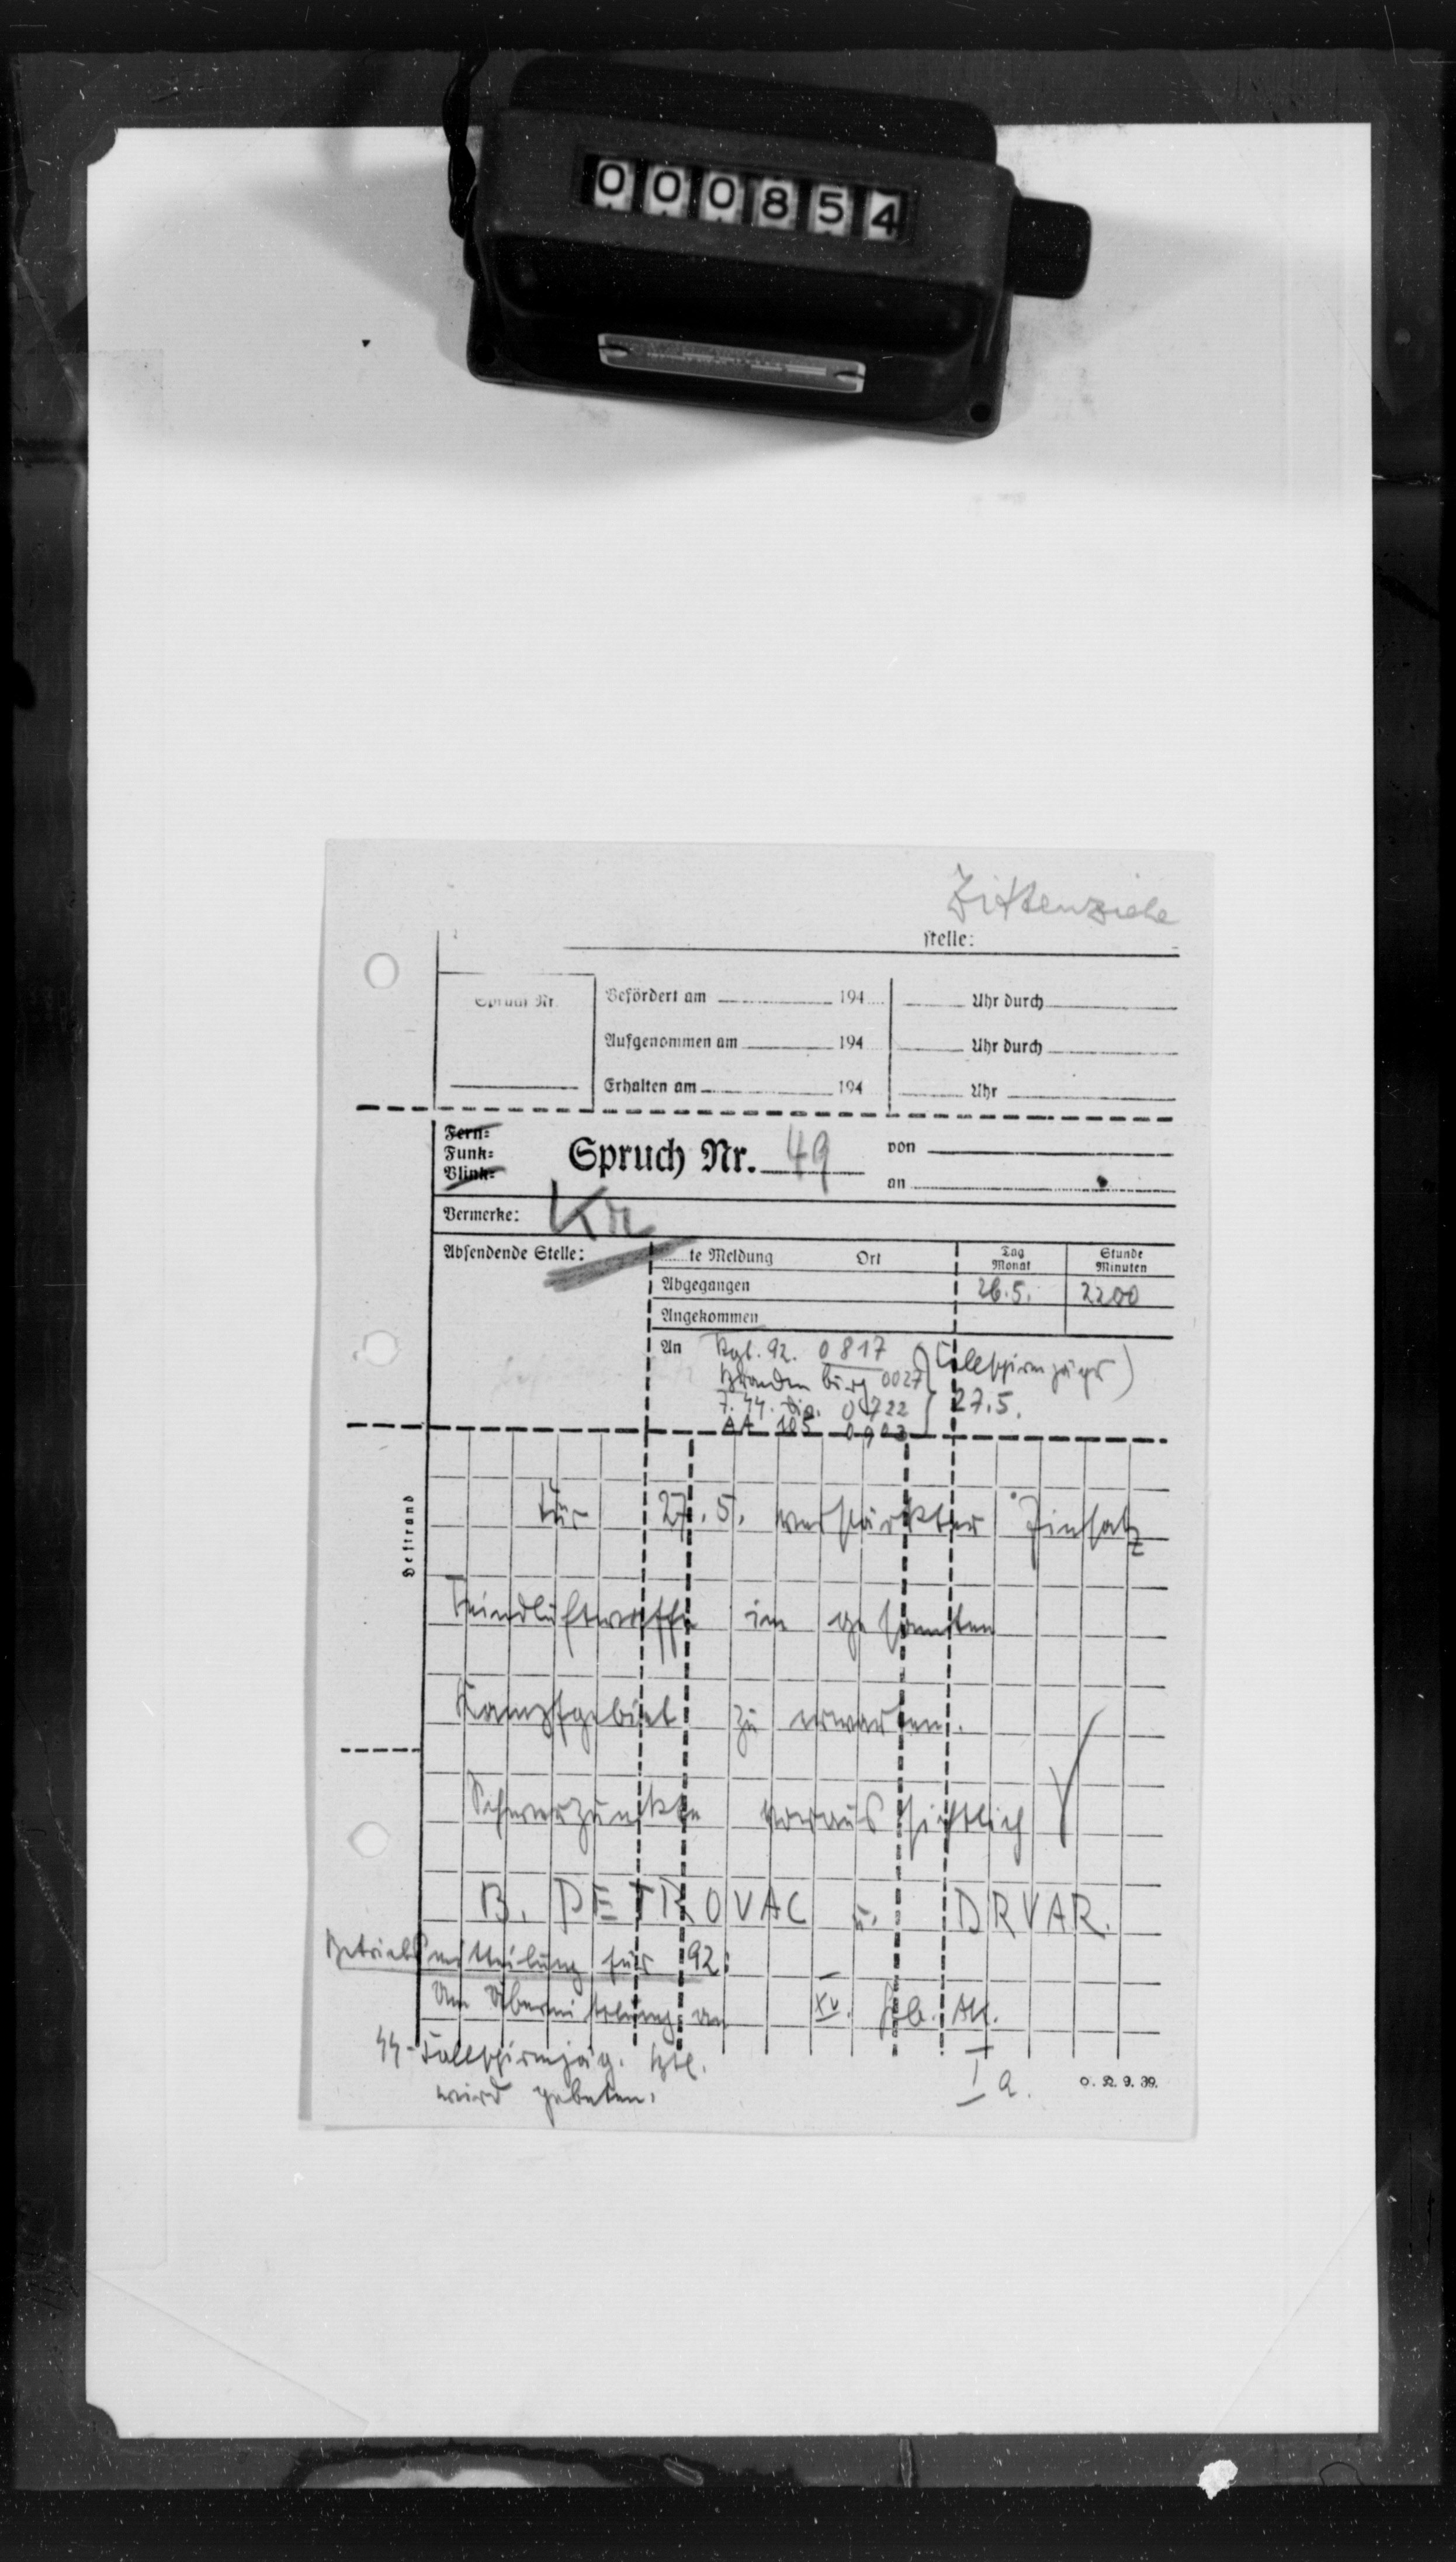 000854
Zittenziele
stelle:
Spruch Nr.
Befördert am 194 Uhr durch
Aufgenommen am 194 Uhr durch
Erhalten am 194 Uhr
Fern=
Funk=
Blink=
Spruch Nr. 49
von
an
Vermerke: Kr
Absendende Stelle:
te Meldung Ort Tag Monat Stunde Minuten
Abgegangen 26.5. 2200
Angekommen
An Rgt. 92. 0817 (Fallschirmjäger)
Brandenburg 0027
7. SS. Div. 0722 27.5.
AA 105 0903
Heftrand
Für 27.5. verstärkter Einsatz
Feindluftwaffe im gesamten
Kampfgebiet zu erwarten.
Schwerpunkte voraussichtlich
B. PETROVAC u. DRVAR.
Betriebsmitteilung für 92:
Um Übermittelung an XV. Geb. AK.
SS-Fallschirmjäg. Btl. Ia.
wird gebeten.
O. K. 9. 39.